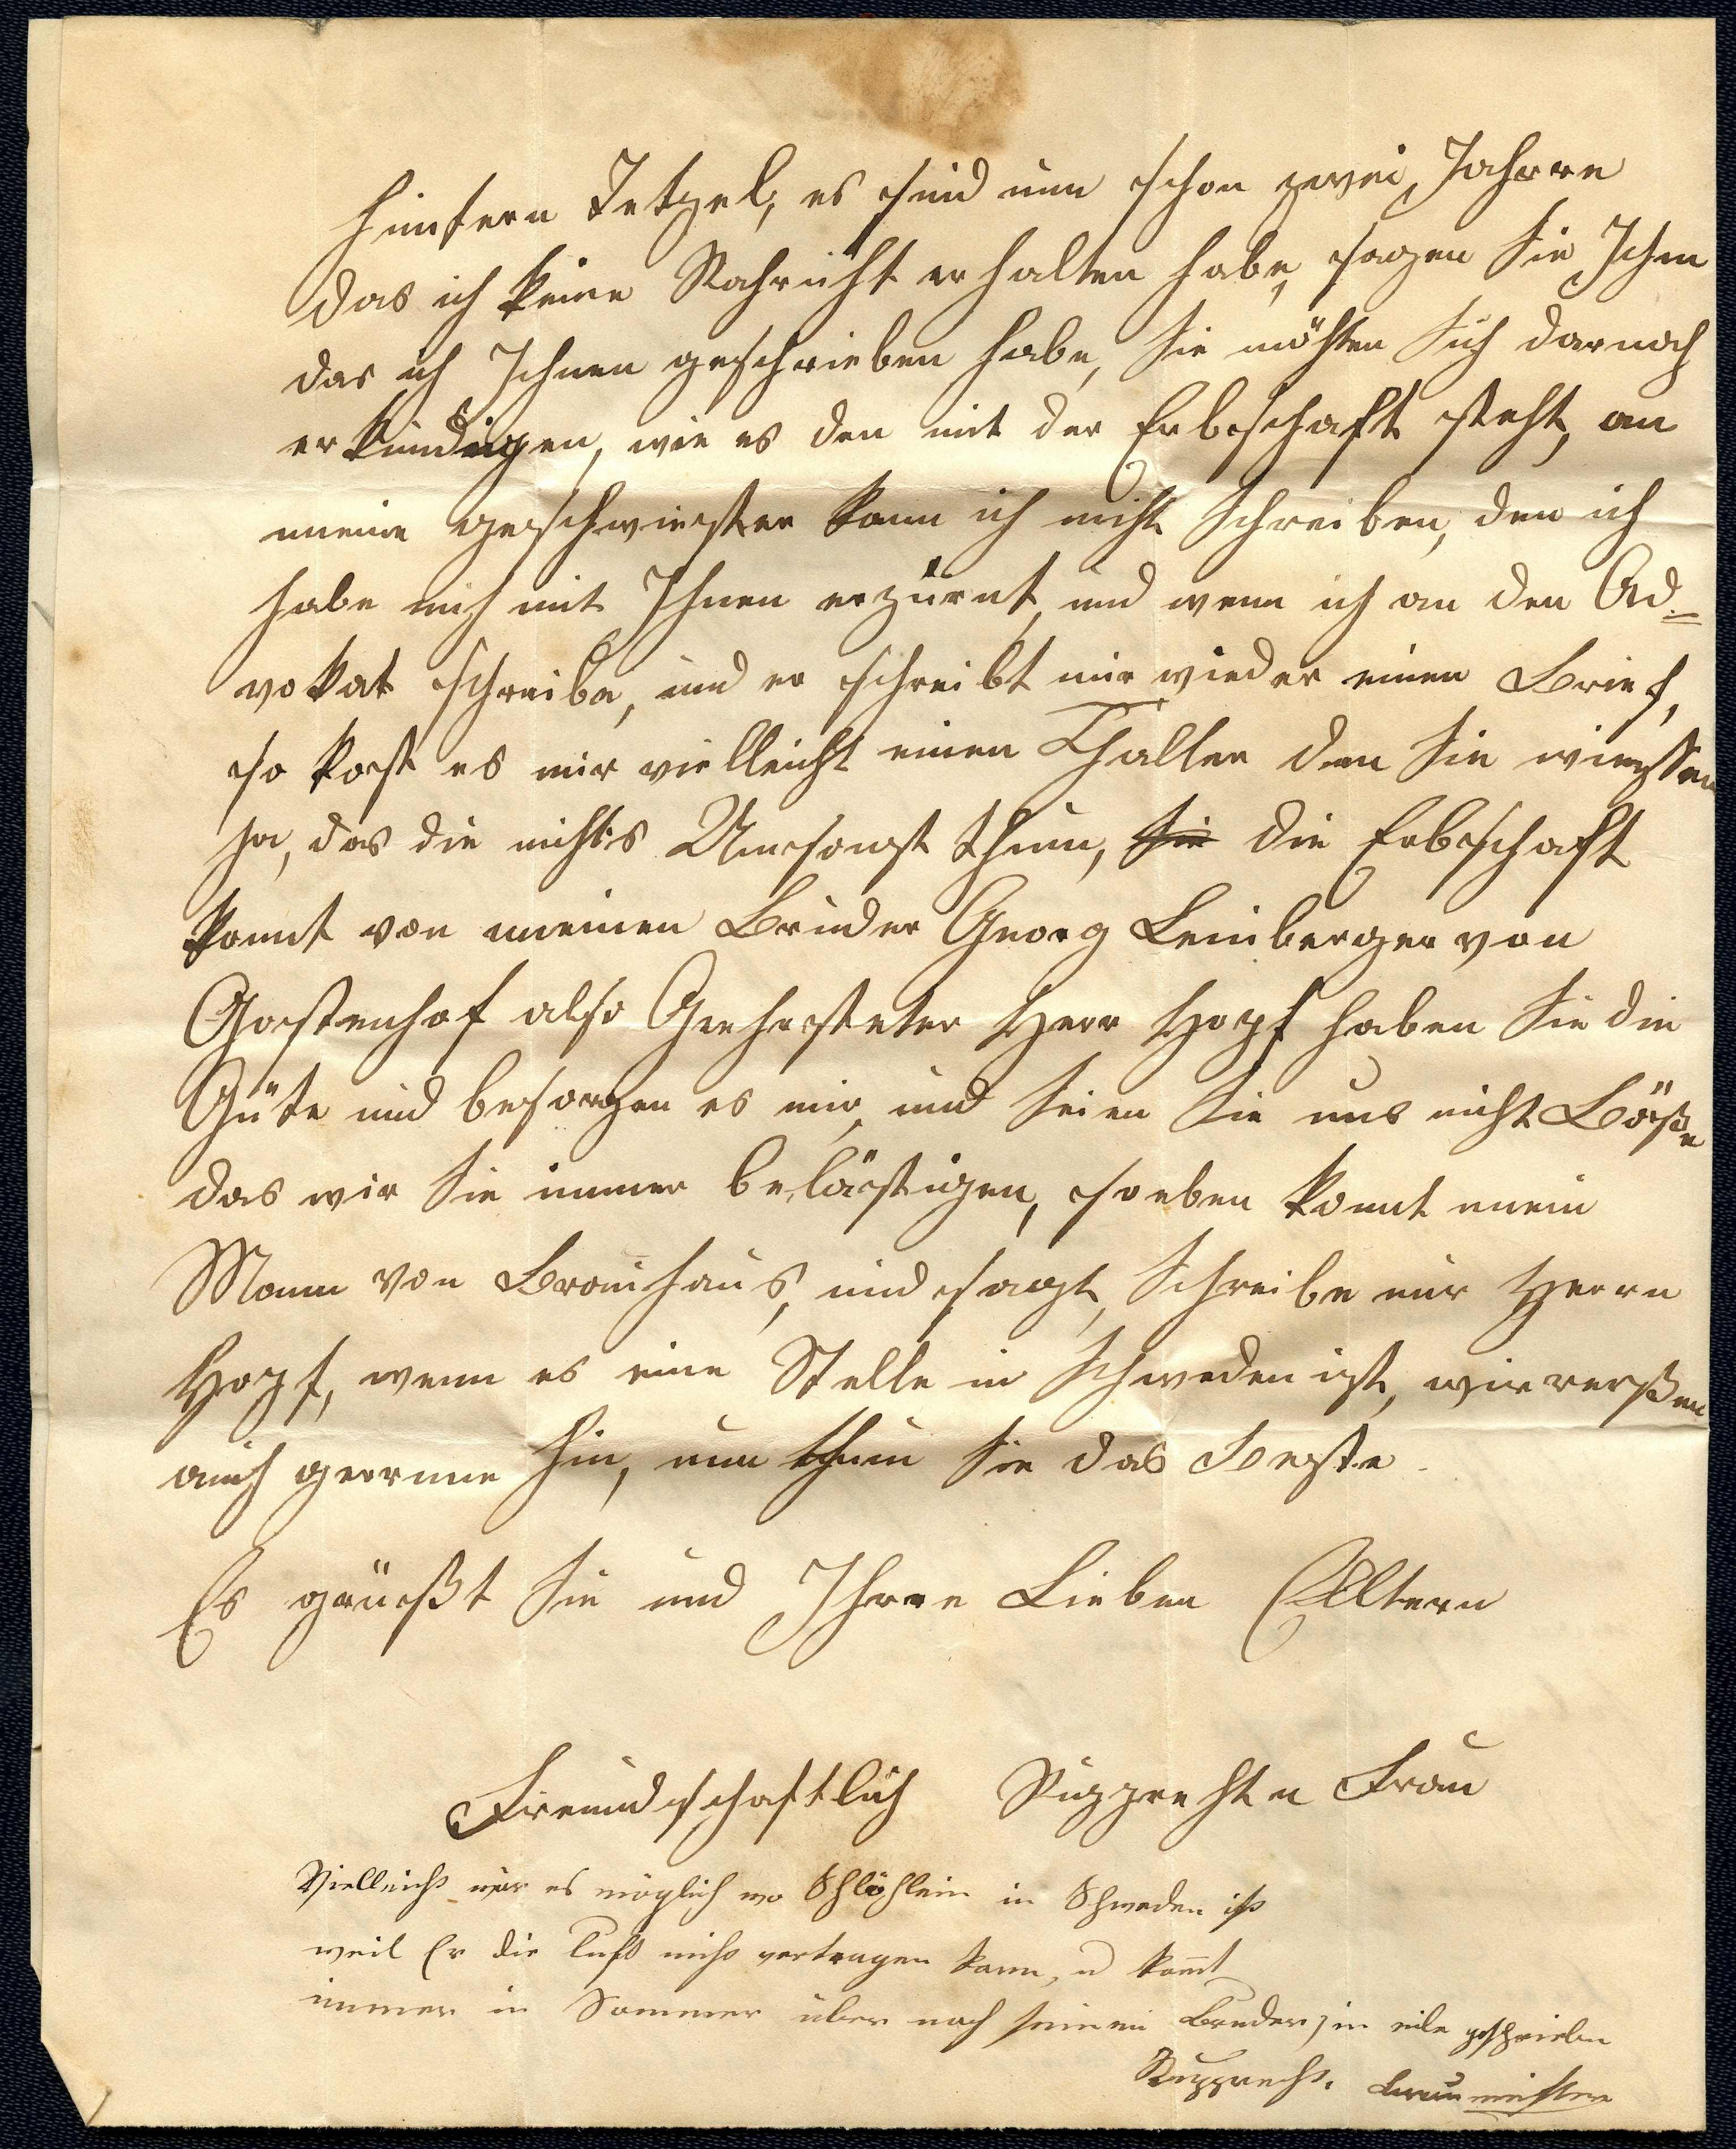 hintern Tetzel, es sind nun schon zwei Jahrre
das ich keine Nahricht erhalten habe, sagen Sie Ihm
das ich Ihnen geschrieben habe, Sie möhten Sich darnach
erkundigen, wie es den mit der Erbschaft steht, an
meine geschwiester kann ich nicht Schreiben, den ich
habe mich mit Ihnen erzürnt, und wenn ich an den Ad=
vokat schreibe, und er schreibt mir wieder einen Brief,
so kost es mir vielleicht einen Thaller den Sie wiessen
ja, das die nichts Umsonst thun, Sie die Erbschaft
komt von meinen Bruder Georg Leinberger von
Gostenhof also Geehrsteter Herr Hopf haben Sie die
Güte und besorgen es mir, und Seien Sie uns nicht Böße
das wir Sie immer belästigen, soeben komt mein
Mann von Brauhaus, und sagt, Schreibe nur Herrn
Hopf, wenn es eine Stelle in Schweden ist, wir reißen
auch gerrne hin, nun thun Sie das Beste.
Es grüeßt Sie und Ihrre Lieben Ältern
Freundschaftlich Rupprechte Frau
Vielleicht wär es möglich wo Schlöhlein in Schweden ist
weil Er die Luft nicht vertragen kann, u komt
immer in Sommer über nach seinem Bruder, in eile geschrieben
Rupprecht. Braumeister